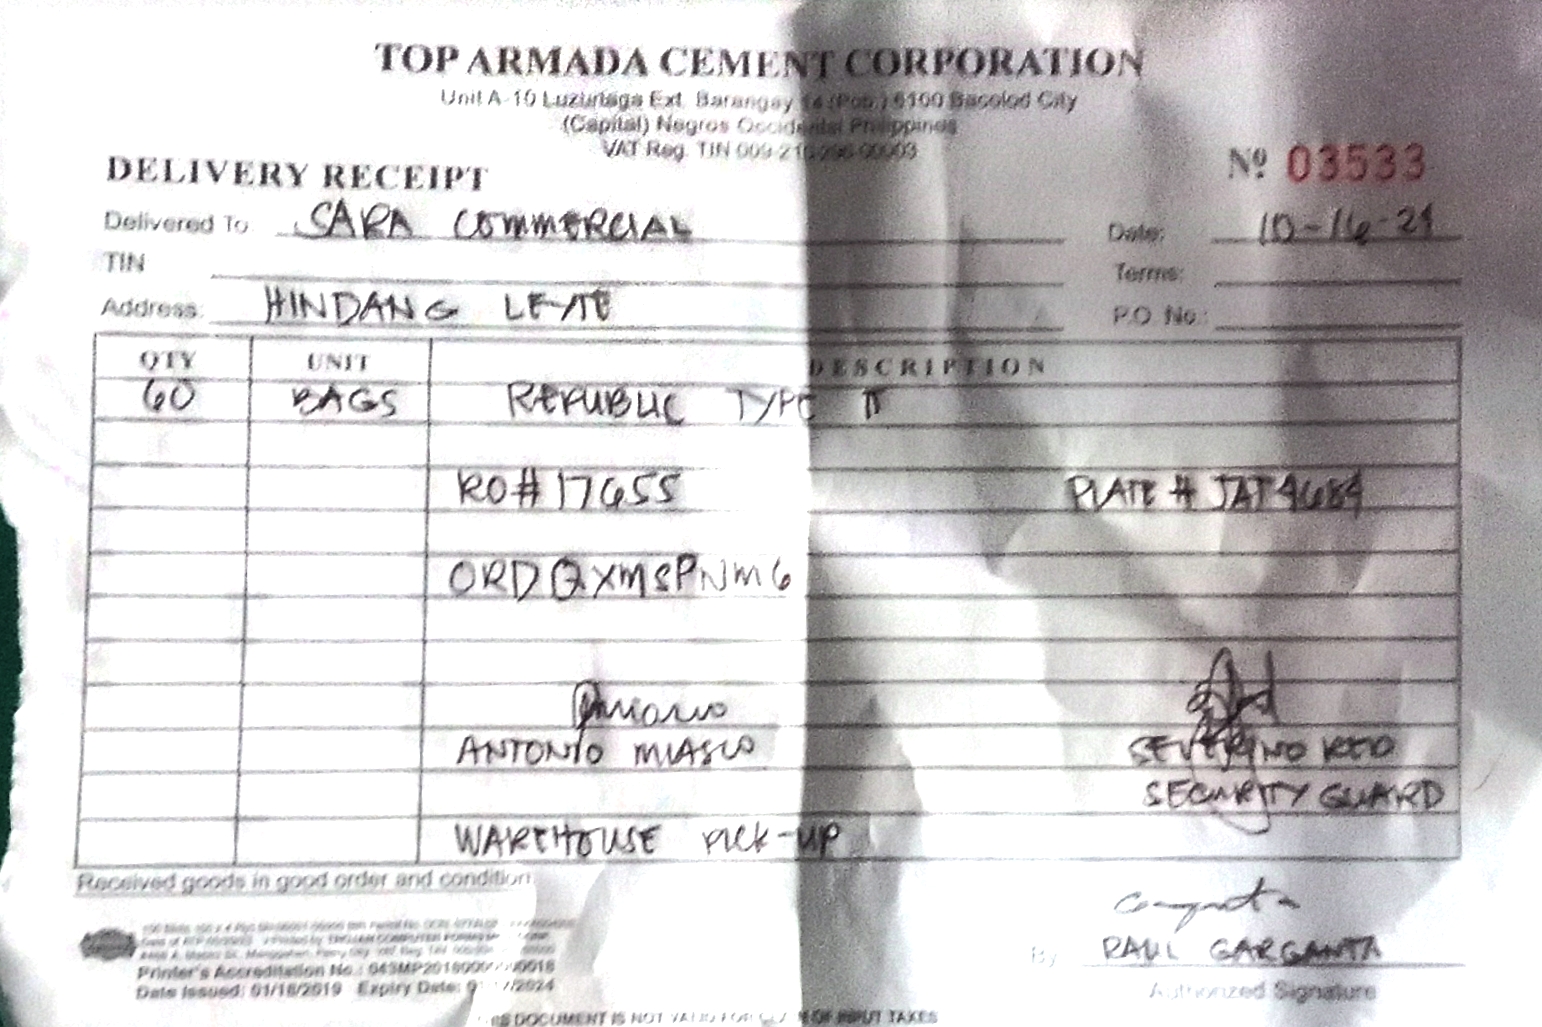 TOP ARMADA CEMENT CORPORATION
Unit A-10 Luzuriaga Ext. Barangay 14 (Pob.) 6100 Bacolod City
(Capital) Negros Occidental Philippines
VAT Reg. TIN
DELIVERY RECEIPT
Nº 03533
Delivered To SARA COMMERCIAL
Date: 10-16-21
TIN
Terms:
Address: HINDANG LEYTE
P.O. No.:
QTY UNIT DESCRIPTION
60 BAGS REPUBLIC TYPE II
RO# 17655 PLATE # JAT4684
ORDQXMSPNM6
ANTONIO MIASCO SEVERINO
SECURITY GUARD
WAREHOUSE PICK-UP
Received goods in good order and condition
By RAUL GARGANTA
Authorized Signature
Printer's Accreditation No.:
Date Issued: 01/18/2019 Expiry Date: /2024
DOCUMENT IS NOT VALID FOR OF INPUT TAXES